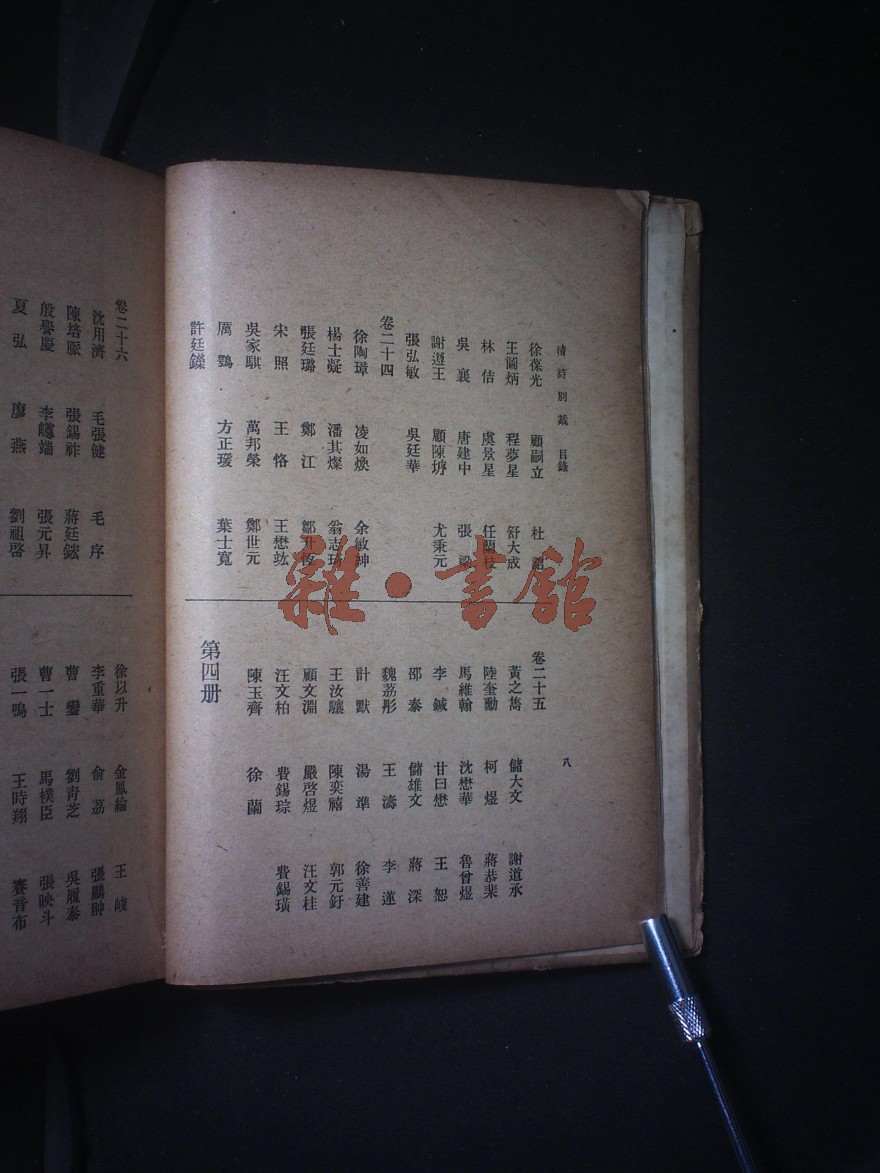 清詩別裁 目錄
徐葆光 顧嗣立 杜詔
王圖炳 程夢星 舒大成
林佶 虞景星 任蘭枝
吳襄 唐建中 張梁
謝遵王 顧陳垿 尤秉元
張弘敏 吳廷華
卷二十四
徐陶璋 凌如煥 余敏紳
楊士凝 潘其燦 翁志琦
張廷璐 鄭江 鄒升恆
宋照 王恪 王懋竑
吳家騏 萬邦榮 鄭世元
厲鶚 方正瑗 葉士寬
許廷鑅
卷二十五
黃之雋 儲大文 謝道承
陸奎勳 柯煜 蔣恭棐
馬維翰 沈懋華 魯曾煜
李鋮 甘曰懋 王恕
邵泰 儲雄文 蔣深
魏荔彤 王濤 李蓮
計默 湯準 徐善建
王汝驤 陳奕禧 郭元釪
顧文淵 嚴啓煜 汪文桂
汪文柏 費錫琮 費錫璜
陳玉齊 徐蘭
第四册
八
卷二十六
沈用濟 毛張健 毛序
陳培脈 張錫祚 蔣廷鋐
殷譽慶 李嶟端 張元昇
夏弘 廖燕 劉祖啓
徐以升 金鳳綸 王峻
李重華 俞荔 張鵬翀
曹鑾 劉青芝 吳履泰
曹一士 馬樸臣 張映斗
張一鳴 王時翔 賽音布
雜·書館